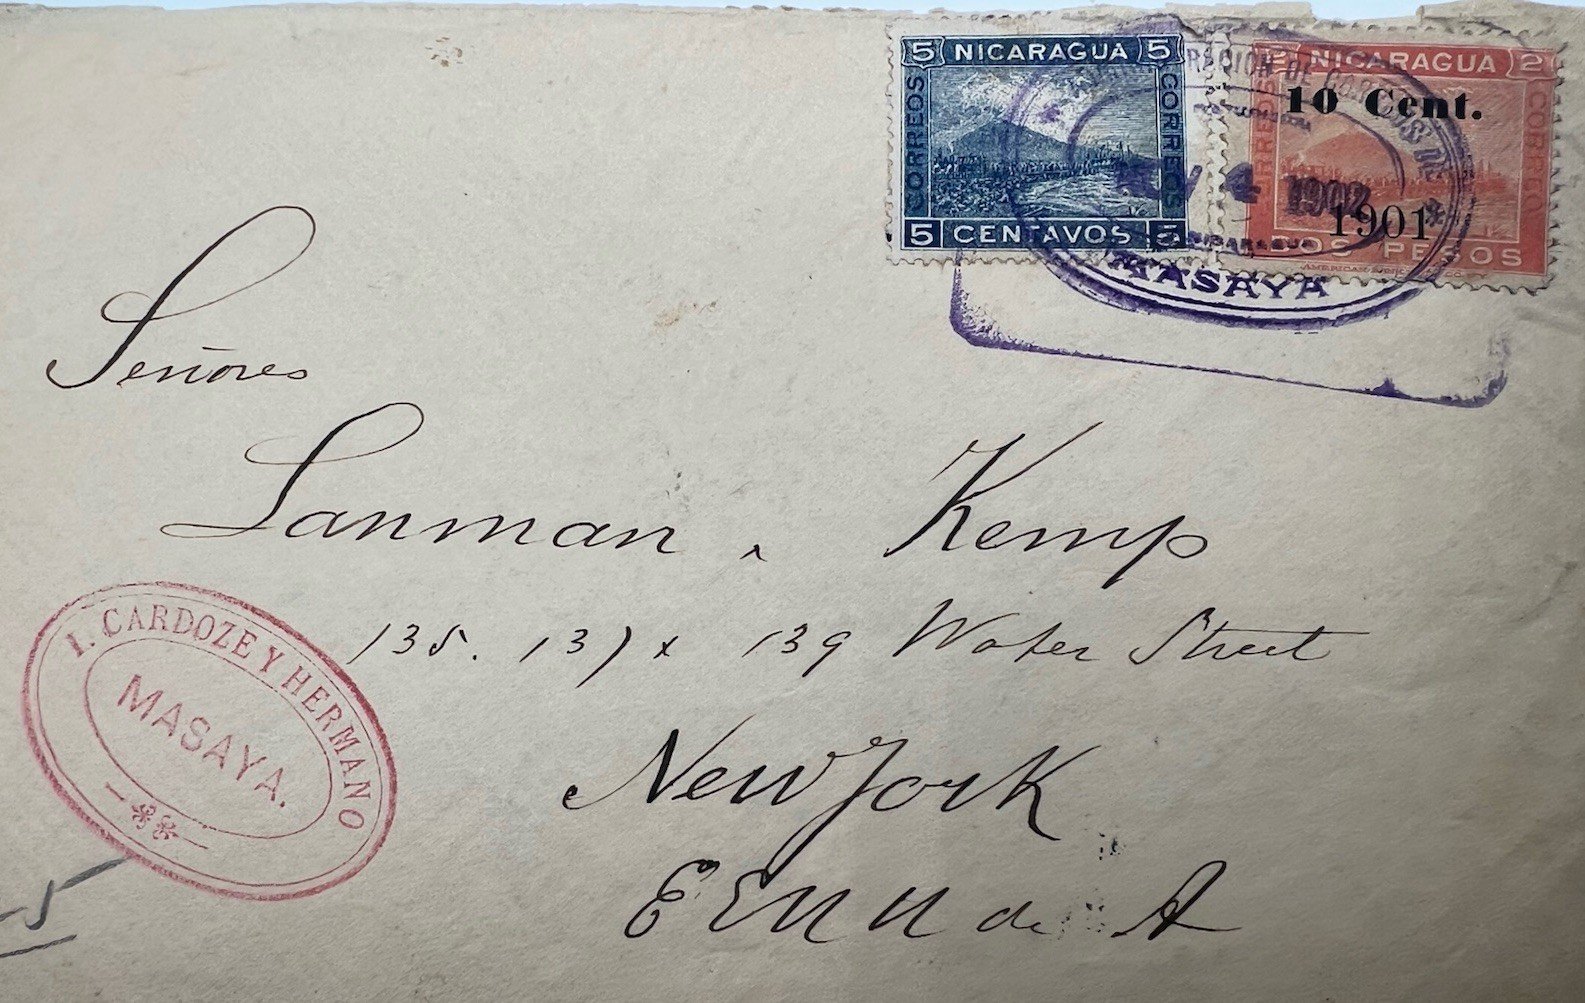 5 NICARAGUA 5
CORREOS
CORREOS
5 CENTAVOS 5
2 NICARAGUA 2
CORREOS
CORREOS
10 Cent.
1901
DOS PESOS
DE CORREOS DE
4 1902
NICARAGUA
MASAYA
Señores
Lanman, Kemp
135. 137 x 139 Water Street
New York
EE UU de A
I. CARDOZE Y HERMANO
MASAYA.
5